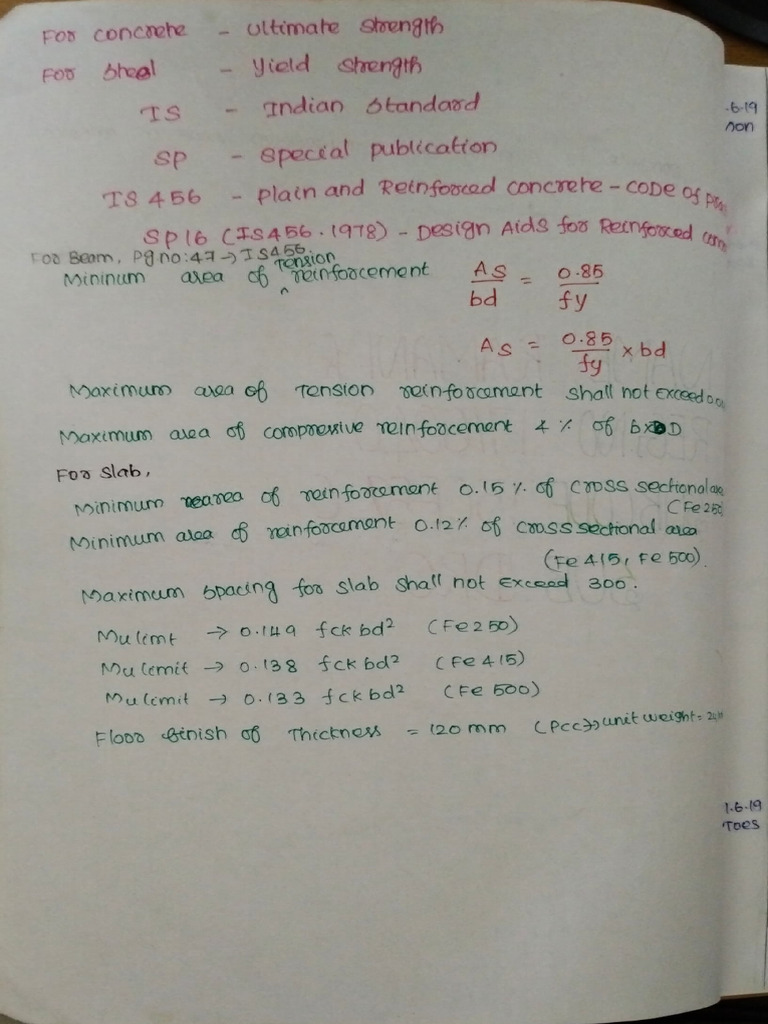 For concrete - ultimate strength
For Steel - Yield strength
IS - Indian Standard
SP - Special publication
IS 456 - Plain and Reinforced concrete - code of
SP16 (IS456.1978) - Design Aids for Reinforced
For Beam, Pg no: 47 → IS 456
Mininum area of ^ Tension reinforcement As/bd = 0.85/fy
As = 0.85/fy x bd
Maximum area of Tension reinforcement shall not exceed
Maximum area of compressive reinforcement 4 % of bxD
For slab,
Minimum area of reinforcement 0.15 % of cross sectional
(Fe 250
Minimum area of reinforcement 0.12 % of cross sectional area
(Fe 415, Fe 500).
Maximum spacing for slab shall not exceed 300.
Mu limt → 0.149 fck bd² (Fe 250)
Mu limit → 0.138 fck bd² (Fe 415)
Mu limit → 0.133 fck bd² (Fe 500)
Floor finish of Thickness = 120 mm (PCC) unit weight =
.6.19
non
1.6.19
Toes